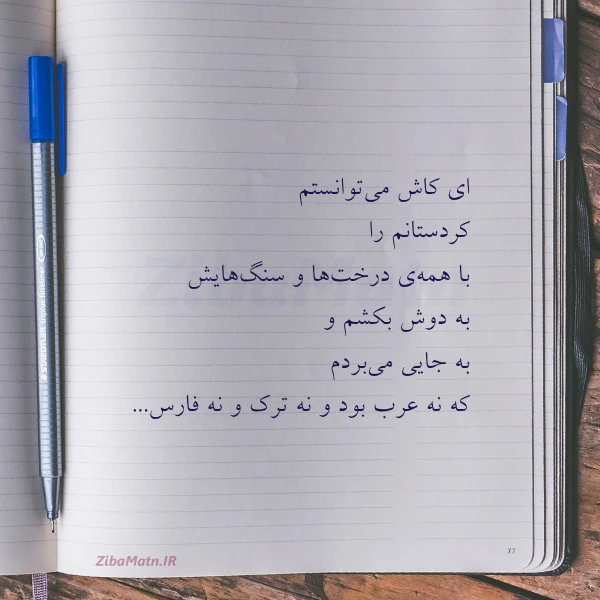 ای کاش می‌توانستم
کردستانم را
با همه‌ی درخت‌ها و سنگ‌هایش
به دوش بکشم و
به جایی می‌بردم
که نه عرب بود و نه ترک و نه فارس...
77
ZibaMatn.IR